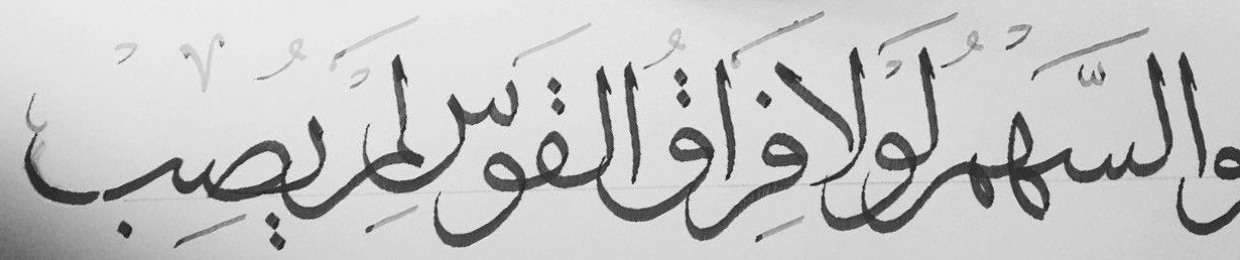 والسَّهْمُ لَوْلَا فِرَاقُ الْقَوْسِ لَمْ يُصِبْ